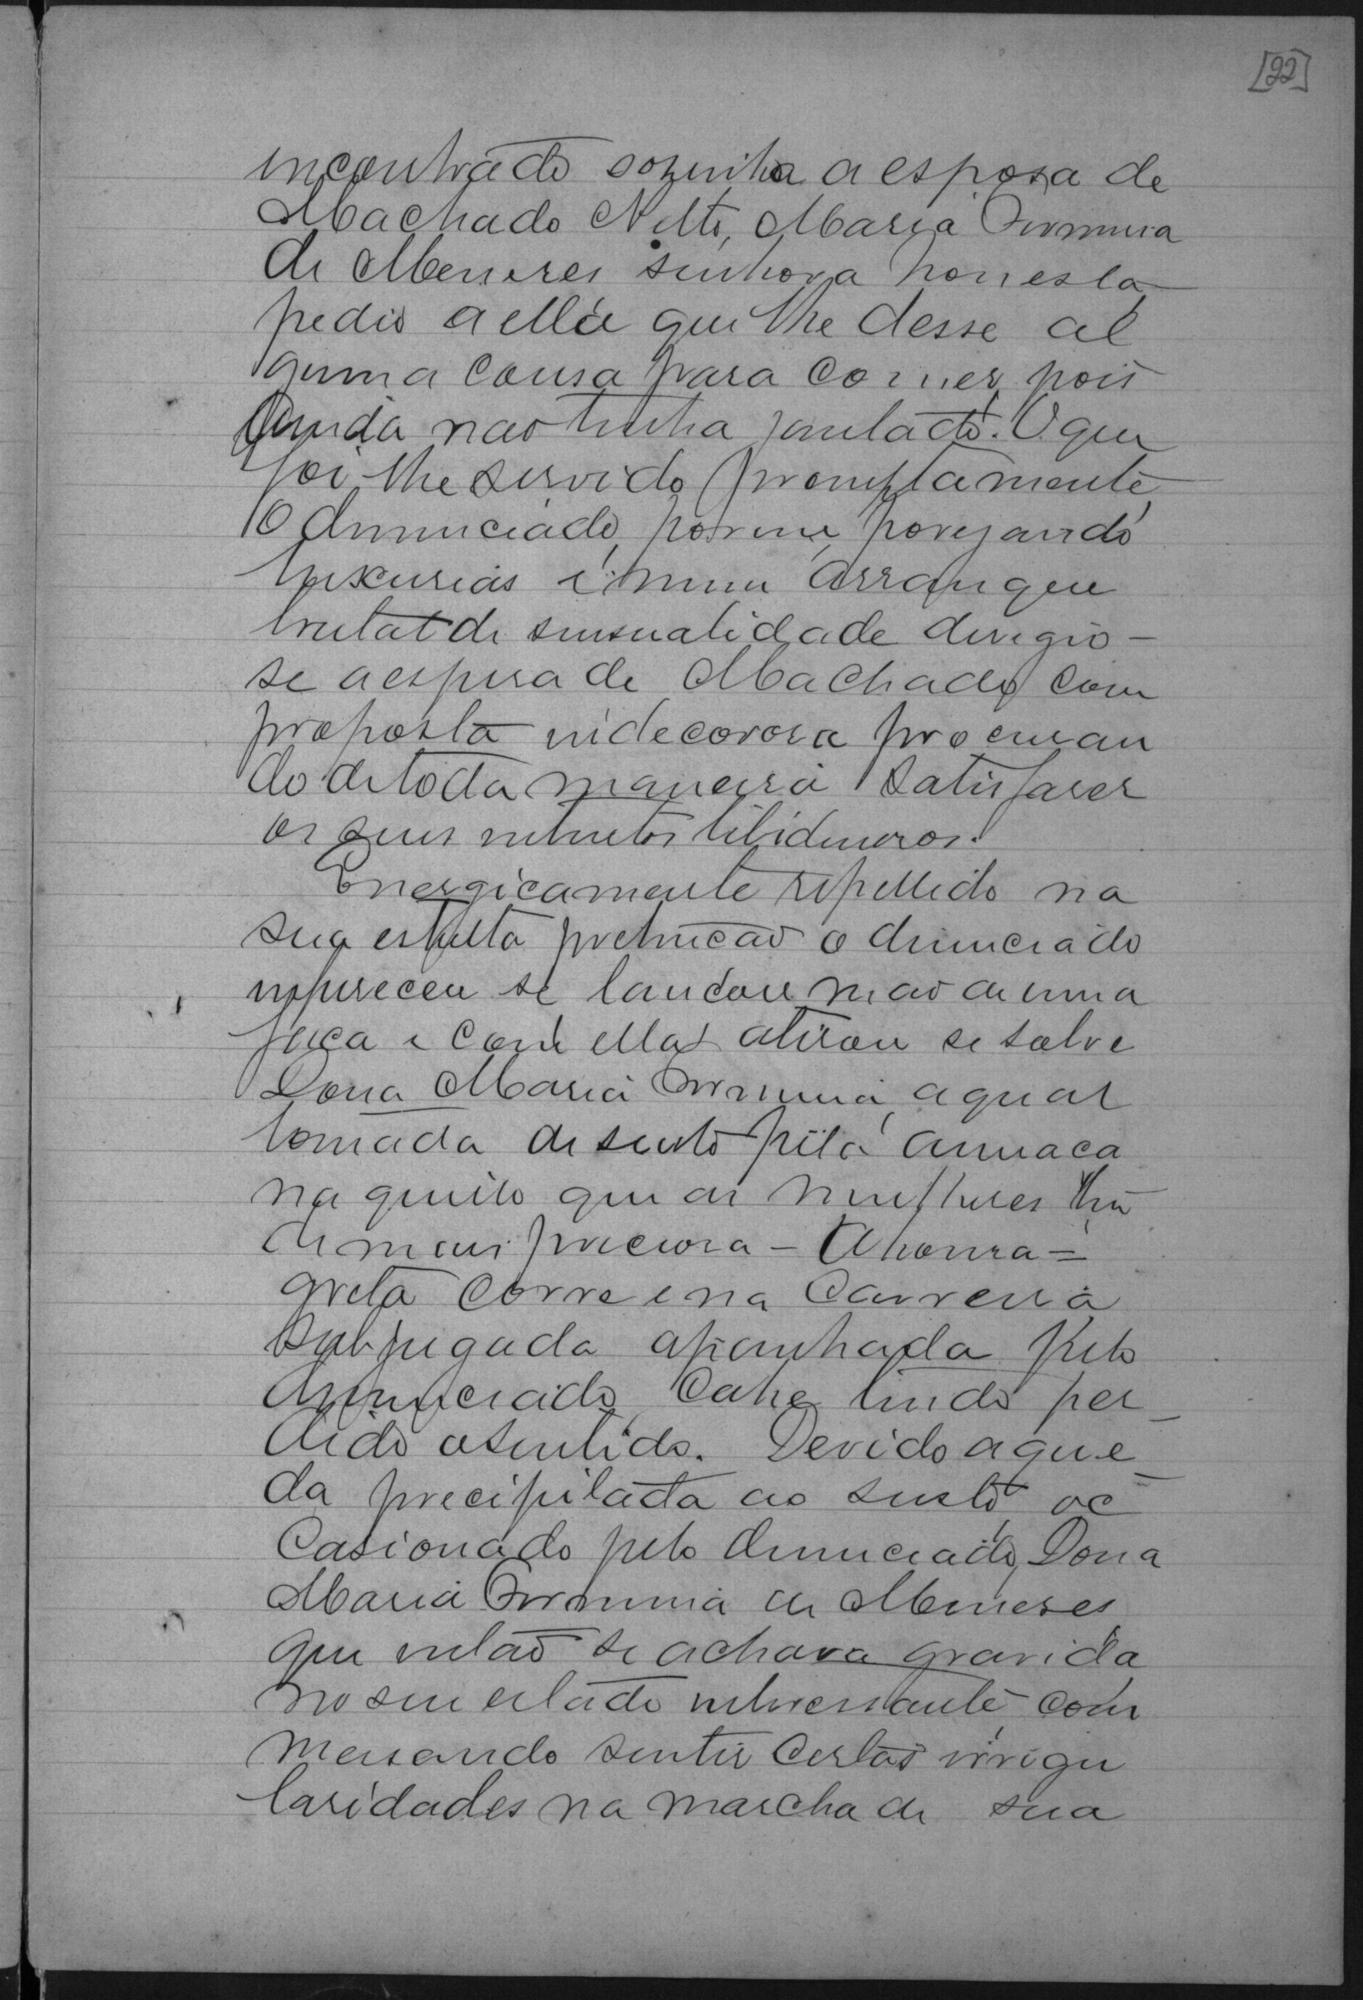 [22]
incontrado sozinha a esposa de
Machado Netto, Maria Firmina
de Menezes senhora honesta,
pedio a ella que lhe desse al
guma cousa para comer, pois
ainda nao tinha jantado. O que
foi-lhe servido promptamente
O denunciado, porem, porejando
luxurias e num arranque
brutal de sensualidade derigio-
se a esposa de Machado com
proposta indecorosa procuran
do de toda maneira satisfazer
os seus instinctos libidinosos.
Energicamente repellido na
sua estulta pretencao o denunciado
infureceu se lancou mao de uma
faca e com ella atirou se sobre
Dona Maria Firmina, a qual
tomada de susto pela ameaca
naquillo que as mulheres tem
de mais precioso - A honra =
grita corre e na carreira
subjugada apanhada pelo
denunciado, cahe tindo per_
dido o sentido. Devido a que_
da precipitada ao susto oc_
casionado pelo denunciado, Dona
Maria Firmina de Menezes
que entao se achava gravida
no seu estado interessante com
mesando sentir certas irrigu
laridades na marcha de sua